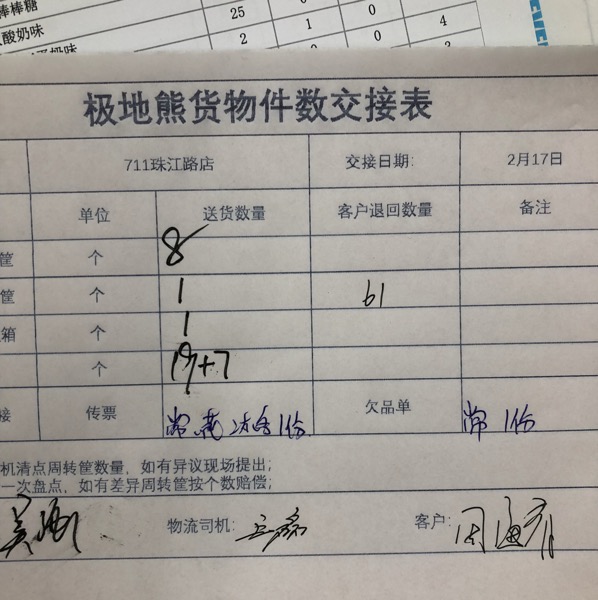 棒棒糖 25 0 0
酸奶味 2 1 0 4
极地熊货物件数交接表
711珠江路店 交接日期: 2月17日
单位 送货数量 客户退回数量 备注
筐 个 8
筐 个 1 61
箱 个 1
个 19+7
接 传票 常 冰各1份 欠品单 常 1份
机清点周转筐数量，如有异议现场提出；
一次盘点，如有差异周转筐按个数赔偿；
物流司机: 客户: